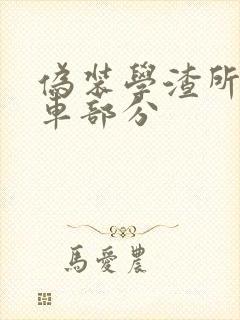 偽裝學渣所
車部分
馬愛農